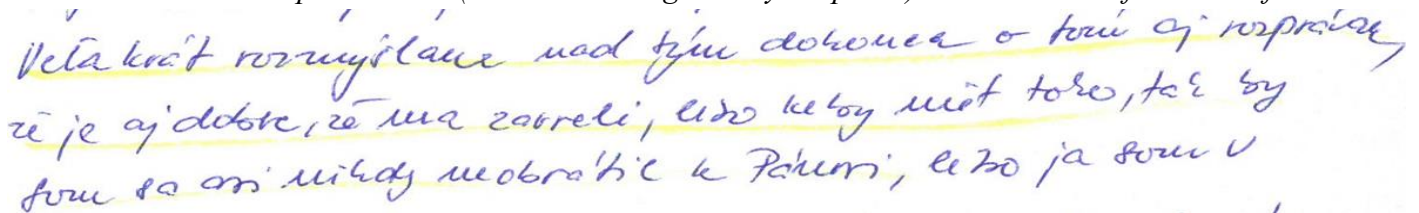 Veľa krát rozmýšľame nad tým dokonca o tom aj rozprávam,
že je aj dobre, že ma zavreli, lebo keby niet toho, tak by
som sa asi nikdy neobrátil k Pánovi, lebo ja som v